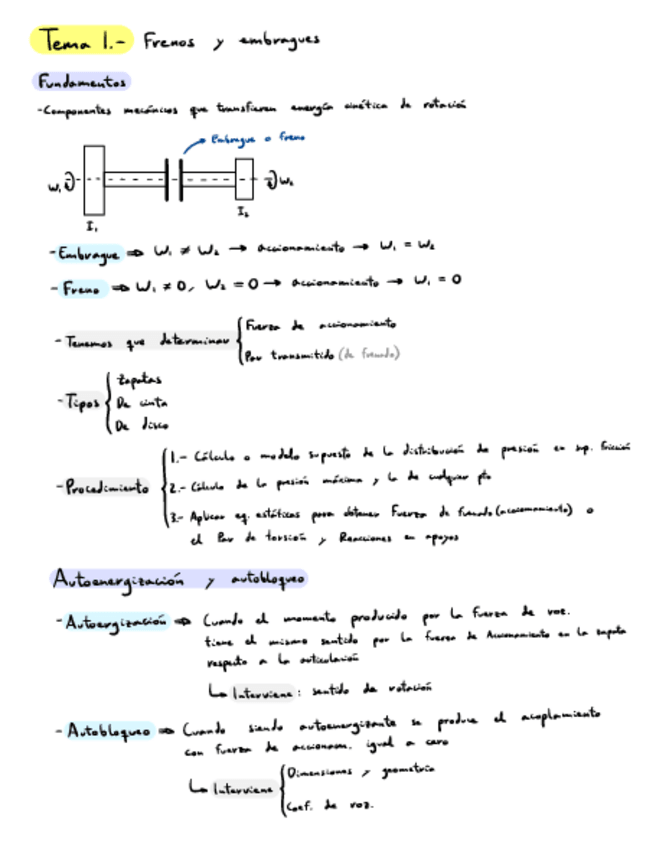 Tema 1.- Frenos y embragues
Fundamentos
-Componentes mecánicos que transfieren energía cinética de rotación
Embrague o freno
W₁ W₂
I₁ I₂
-Embrague ⇒ W₁ ≠ W₂ → accionamiento → W₁ = W₂
-Freno ⇒ W₁ ≠ 0, W₂ = 0 → accionamiento → W₁ = 0
-Tenemos que determinar
Fuerza de accionamiento
Par transmitido (de frenado)
-Tipos
Zapatas
De cinta
De disco
-Procedimiento
1.- Cálculo o modelo supuesto de la distribución de presión en sup. fricción
2.- Cálculo de la presión máxima y la de cualquier pto
3.- Aplicar eq. estáticas para obtener Fuerza de frenado (accionamiento) o
el Par de torsión y Reacciones en apoyos
Autoenergización y autobloqueo
-Autoergización ⇒ Cuando el momento producido por la fuerza de roz.
tiene el mismo sentido por la fuerza de Accionamiento en la zapata
respecto a la articulación
↳ Interviene: sentido de rotación
-Autobloqueo ⇒ Cuando siendo autoenergizante se produce el acoplamiento
con fuerza de accionam. igual a cero
↳ Interviene
Dimensiones y geometría
Coef. de roz.